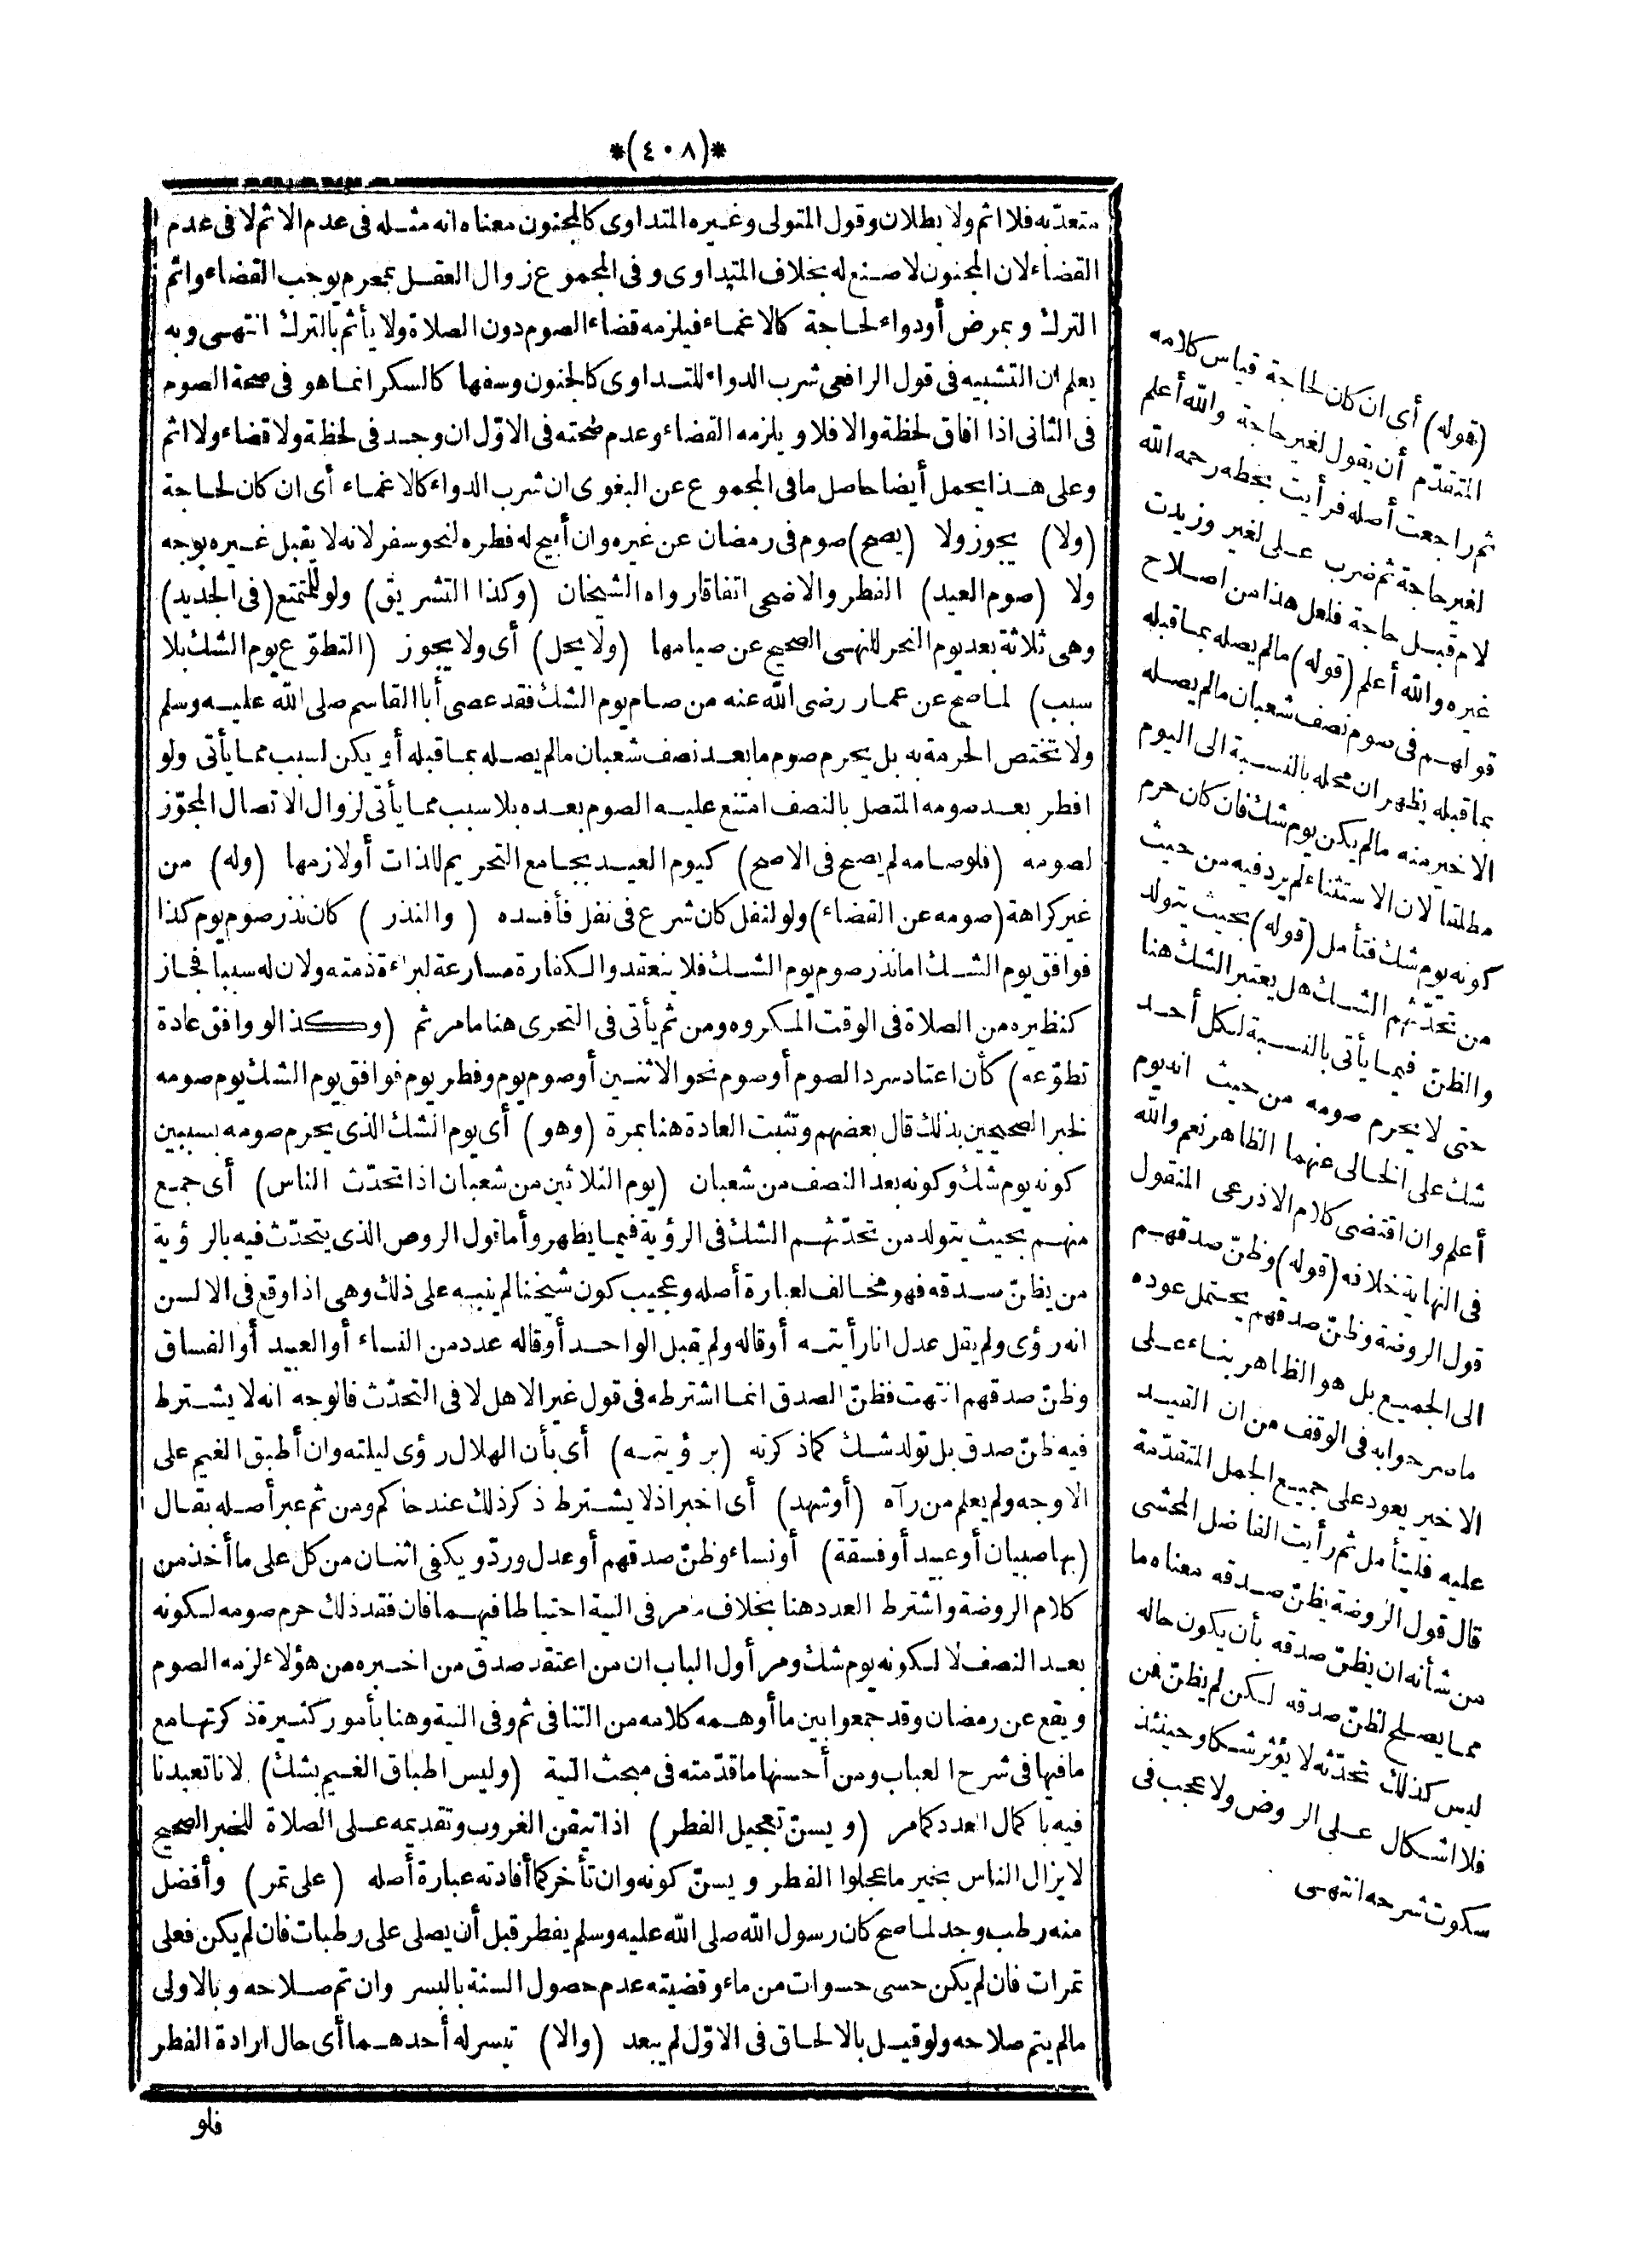 *(٤٠٨)*
متعدّبه فلا اثم ولا بطلان وقول المتولى وغيره المتداوى كالمجنون معناه انه مثله فى عدم الاثم لا فى عدم
القضاء لان المجنون لا صنع له بخلاف المتداوى وفى المجموع زوال العقل بمحرم يوجب القضاء واثم
الترك وبمرض أو دواء لحاجة كالاغماء فيلزمه قضاء الصوم دون الصلاة ولا يأثم بالترك انتهى وبه
يعلم ان التشبيه فى قول الرافعى شرب الدواء للتداوى كالجنون وسفها كالسكر انما هو فى صحة الصوم
فى الثانى اذا افاق لحظة والا فلا ويلزمه القضاء وعدم صحته فى الاوّل ان وجد فى لحظة ولا قضاء ولا اثم
وعلى هذا يحمل أيضا حاصل ما فى المجموع عن البغوى ان شرب الدواء كالاغماء أى ان كان لحاجة
(ولا) يجوز ولا (يصح) صوم فى رمضان عن غيره وان أبيح له فطره لنحو سفر لانه لا يقبل غيره بوجه
ولا (صوم العيد) الفطر والاضحى اتفاقا رواه الشيخان (وكذا التشريق) ولو للمتمتع (فى الجديد)
وهى ثلاثة بعد يوم النحر للنهى الصحيح عن صيامها (ولا يحل) أى ولا يجوز (التطوّع يوم الشك بلا
سبب) لما صح عن عمار رضى الله عنه من صام يوم الشك فقد عصى أبا القاسم صلى الله عليه وسلم
ولا تختص الحرمة به بل يحرم صوم ما بعد نصف شعبان ما لم يصله بما قبله أو يكن لسبب مما يأتى ولو
افطر بعد صومه المتصل بالنصف امتنع عليه الصوم بعده بلا سبب مما يأتى لزوال الاتصال المجوّز
لصومه (فلو صامه لم يصح فى الاصح) كيوم العيد بجامع التحريم للذات أو لازمها (وله) من
غير كراهة (صومه عن القضاء) ولو لنفل كان شرع فى نفل فأفسده (والنذر) كان نذر صوم يوم كذا
فوافق يوم الشك اما نذر صوم يوم الشك فلا ينعقد والكفارة مسارعة لبراءة ذمته ولان له سببا فجاز
كنظيره من الصلاة فى الوقت المكروه ومن ثم يأتى فى التحرى هنا ما مر ثم (وكذا لو وافق عادة
تطوّعه) كأن اعتاد سرد الصوم أو صوم نحو الاثنين أو صوم يوم وفطر يوم فوافق يوم الشك يوم صومه
لخبر الصحيحين بذلك قال بعضهم وتثبت العادة هنا بمرة (وهو) أى يوم الشك الذى يحرم صومه بسببين
كونه يوم شك وكونه بعد النصف من شعبان (يوم الثلاثين من شعبان اذا تحدّث الناس) أى جمع
منهم بحيث يتولد من تحدّثهم الشك فى الرؤية فيما يظهر وأما قول الروض الذى يتحدّث فيه بالرؤية
من يظنّ صدقه فهو مخالف لعبارة أصله وعجيب كون شيخنا لم ينبه على ذلك وهى اذا وقع فى الالسن
انه رؤى ولم يقل عدل انا رأيته أو قاله ولم يقبل الواحد أو قاله عدد من النساء أو العبيد أو الفساق
وظنّ صدقهم انتهت فظنّ الصدق انما اشترطه فى قول غير الاهل لا فى التحدّث فالوجه انه لا يشترط
فيه ظنّ صدق بل تولد شك كما ذكرته (برؤيته) أى بأن الهلال رؤى ليلته وان أطبق الغيم على
الاوجه ولم يعلم من رآه (أو شهد) أى اخبر اذ لا يشترط ذكر ذلك عند حاكم ومن ثم عبر أصله بقال
(بها صبيان أو عبيد أو فسقة) أو نساء وظنّ صدقهم أو عدل وردّ ويكفى اثنان من كل على ما أخذ من
كلام الروضة واشترط العدد هنا بخلاف ما مر فى النية احتياطا فيهما فان فقد ذلك حرم صومه لكونه
بعد النصف لا لكونه يوم شك ومر أول الباب ان من اعتقد صدق من اخبره من هؤلاء لزمه الصوم
ويقع عن رمضان وقد جمعوا بين ما أوهمه كلامه من التنافى ثم وفى النية وهنا بأمور كثيرة ذكرتها مع
ما فيها فى شرح العباب ومن أحسنها ما قدّمته فى مبحث النية (وليس اطباق الغيم بشك) لانا تعبدنا
فيه باكمال العدد كما مر (ويسنّ تعجيل الفطر) اذا تيقن الغروب وتقديمه على الصلاة للخبر الصحيح
لا يزال الناس بخير ما عجلوا الفطر ويسنّ كونه وان تأخر كما أفادته عبارة أصله (على تمر) وأفضل
منه رطب وجد لما صح كان رسول الله صلى الله عليه وسلم يفطر قبل أن يصلى على رطبات فان لم يكن فعلى
تمرات فان لم يكن حسى حسوات من ماء وقضيته عدم حصول السنة بالبسر وان تم صلاحه وبالاولى
ما لم يتم صلاحه ولو قيل بالالحاق فى الاوّل لم يبعد (والا) تيسر له أحدهما أى حال ارادة الفطر
فلو
(قوله) أى ان كان لحاجة قياس كلامه
المتقدّم أن يقول لغير حاجة والله أعلم
ثم راجعت أصله فرأيت بخطه رحمه الله
لغير حاجة ثم ضرب على لغير وزيدت
لام قبل حاجة فلعل هذا من اصلاح
غيره والله أعلم (قوله) ما لم يصله بما قبله
قولهم فى صوم نصف شعبان ما لم يصله
بما قبله يظهر ان محله بالنسبة الى اليوم
الاخير منه ما لم يكن يوم شك فان كان حرم
مطلقا لان الاستثناء لم يرد فيه من حيث
كونه يوم شك فتأمل (قوله) بحيث يتولد
من تحدّثهم الشك هل يعتبر الشك هنا
والظنّ فيما يأتى بالنسبة لكل أحد
حتى لا يحرم صومه من حيث انه يوم
شك على الخالى عنهما الظاهر نعم والله
أعلم وان اقتضى كلام الاذرعى المنقول
فى النهاية خلافه (قوله) وظنّ صدقهم
قول الروضة وظنّ صدقهم يحتمل عوده
الى الجميع بل هو الظاهر بناء على
ما مر جوابه فى الوقف من ان القيد
الاخير يعود على جميع الجمل المتقدّمة
عليه فليتأمل ثم رأيت الفاضل المحشى
قال قول الروضة يظنّ صدقه معناه ما
من شأنه ان يظنّ صدقه بأن يكون حاله
مما يصلح لظنّ صدقه لكن لم يظنّ فمن
ليس كذلك تحدّثه لا يؤثر شكا وحينئذ
فلا اشكال على الروض ولا عجب فى
سكوت شرحه انتهى